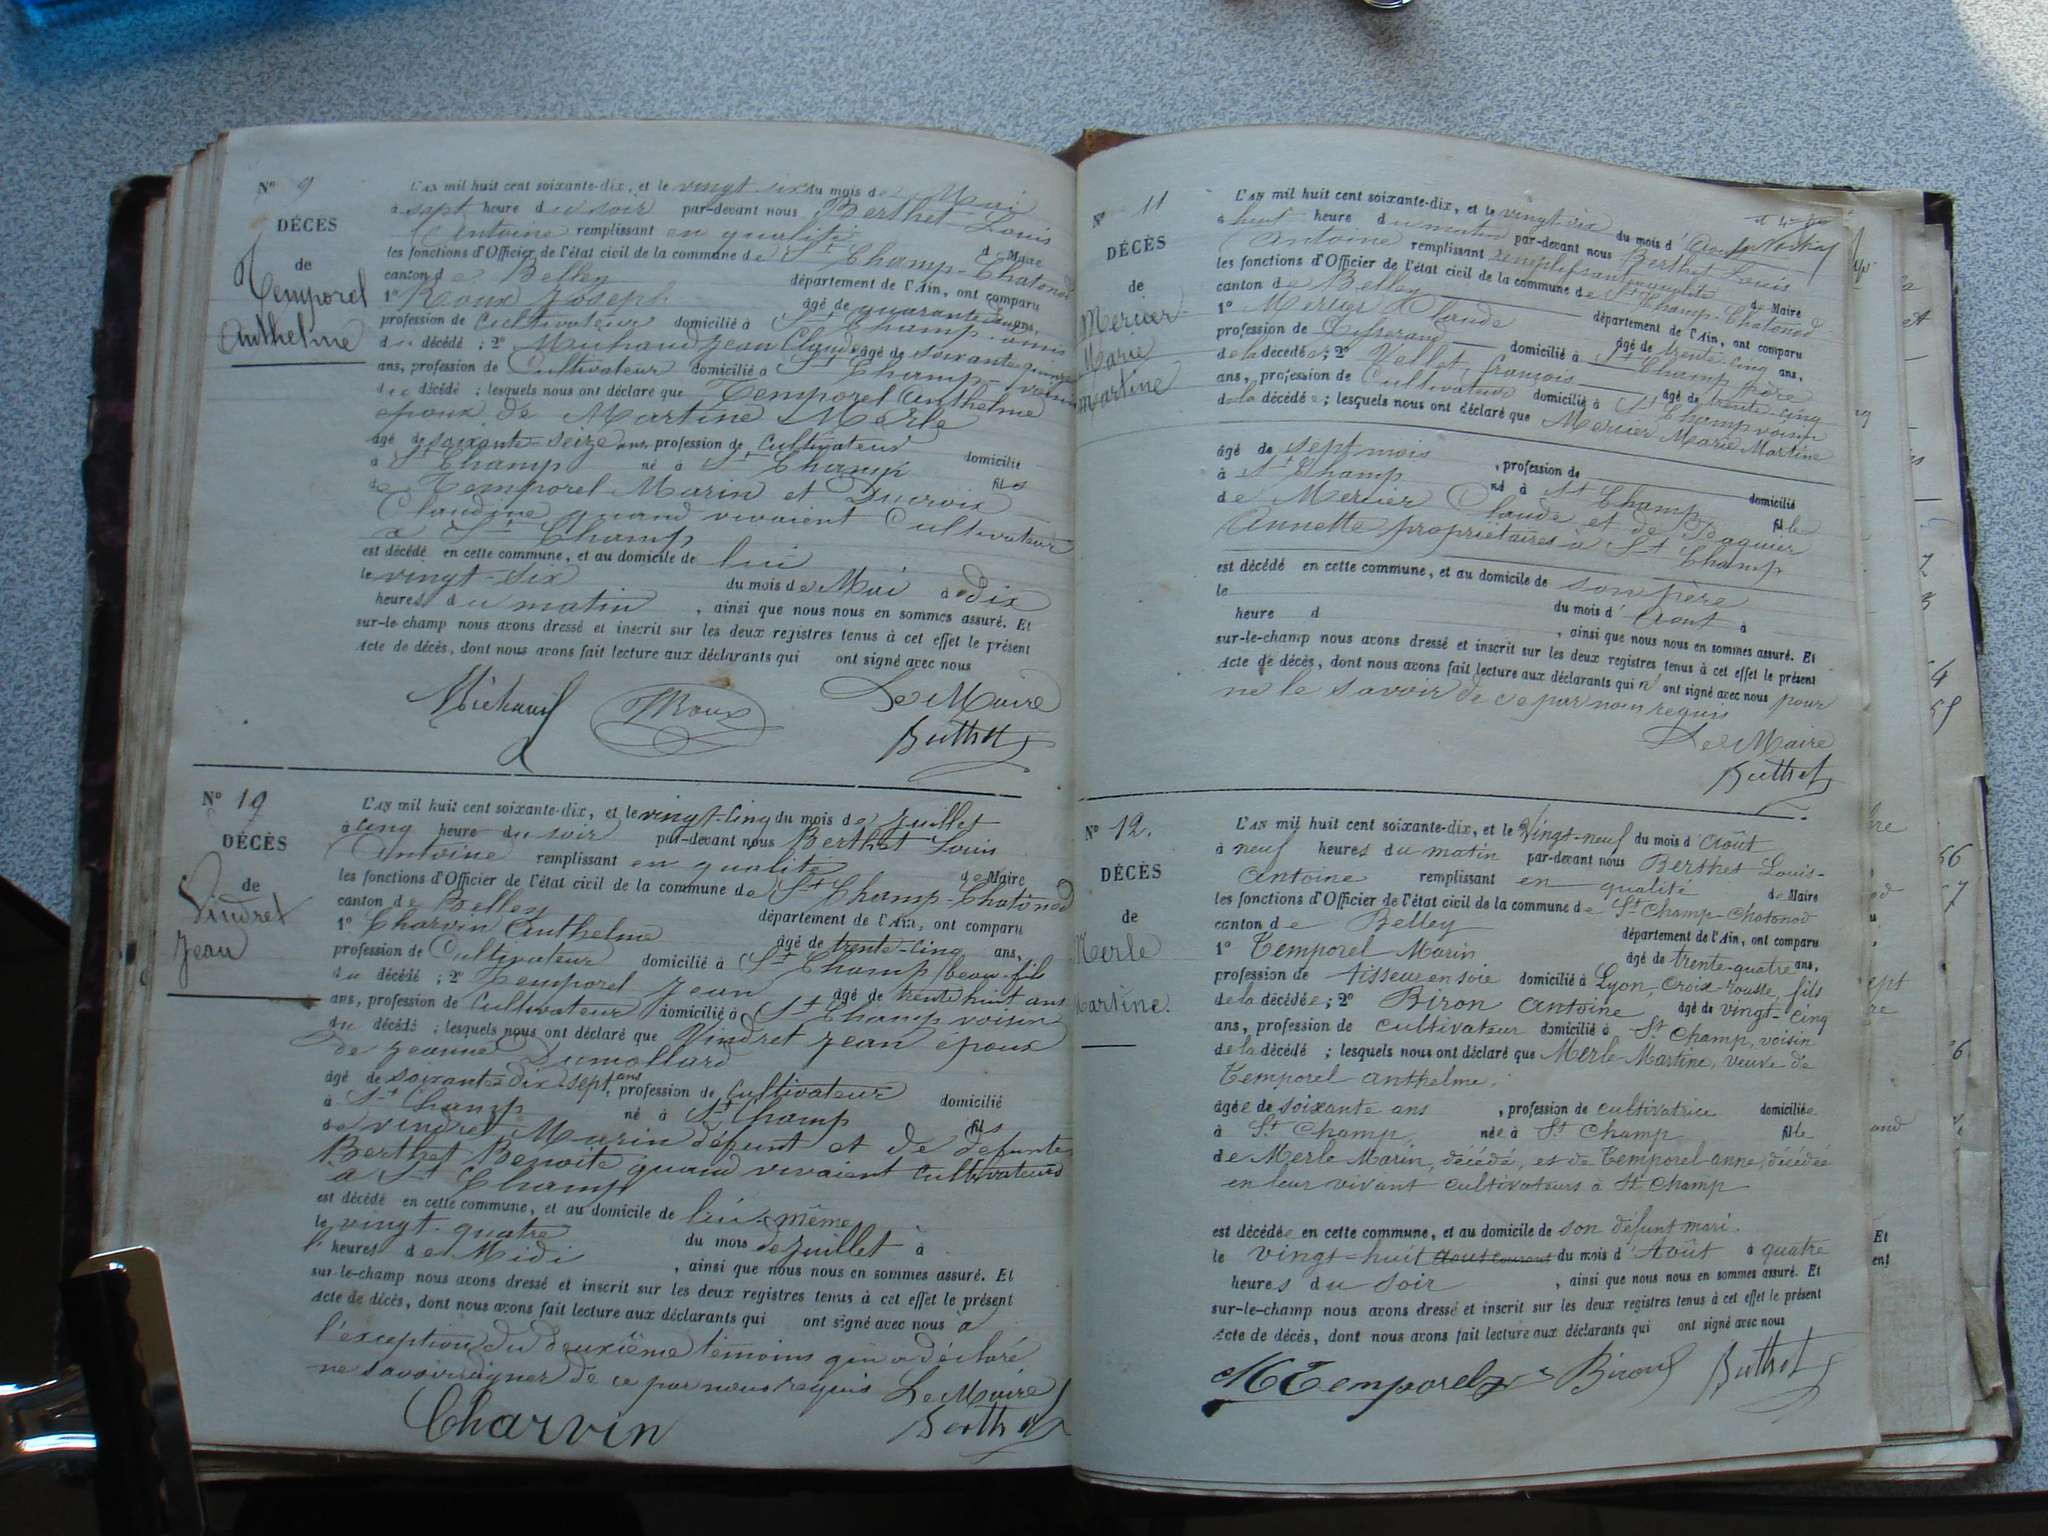 N° 9
DÉCÈS
de
Temporel
Anthelme
L'AN mil huit cent soixante-dix, et le vingt six du mois de Mai
à sept heure du soir par-devant nous Berthet Louis
Antoine remplissant en qualité de Maire
les fonctions d'Officier de l'état civil de la commune de St Champ-Chatonod
canton de Belley département de l'Ain, ont comparu
1° Roux Joseph âgé de quarante ans,
profession de Cultivateur domicilié à St Champ amis
du décédé ; 2° Michaud Jean Claude âgé de soixante quinze
ans, profession de Cultivateur domicilié à St Champ voisin
du décédé ; lesquels nous ont déclaré que Temporel Anthelme
epoux de Martine Merle
âgé de soixante-seize ans, profession de Cultivateur domicilié
à St Champ né à St Champ fils
de Temporel Marin et Ducroix
Claudine quand vivaient Cultivateur
a St Champ
est décédé en cette commune, et au domicile de lui
le vingt-six du mois de Mai à dix
heures du matin , ainsi que nous nous en sommes assuré. Et
sur-le-champ nous avons dressé et inscrit sur les deux registres tenus à cet effet le présent
Acte de décès, dont nous avons fait lecture aux déclarants qui ont signé avec nous
Michaud JRoux Le Maire
Berthet
N° 10
DÉCÈS
de
Vindret
Jean
L'AN mil huit cent soixante-dix, et le vingt-cinq du mois de Juillet
à cinq heure du soir par-devant nous Berthet Louis
Antoine remplissant en qualité de Maire
les fonctions d'Officier de l'état civil de la commune de St Champ-Chatonod
canton de Belley département de l'Ain, ont comparu
1° Charvin Anthelme âgé de trente-cinq ans,
profession de Cultivateur domicilié à St Champ beau-fils
du décédé ; 2° Temporel Jean âgé de trente huit ans
ans, profession de Cultivateur domicilié à St Champ voisin
du décédé ; lesquels nous ont déclaré que Vindret Jean epoux
de Jeanne Dumollard
âgé de soixante dix sept ans, profession de Cultivateur domicilié
à St Champ né à St Champ fils
de Vindret Marin défunt et de défunte
Berthet Benoite quand vivaient Cultivateurs
a St Champ
est décédé en cette commune, et au domicile de lui-même
le vingt-quatre du mois de Juillet à
heures de Midi , ainsi que nous nous en sommes assuré. Et
sur-le-champ nous avons dressé et inscrit sur les deux registres tenus à cet effet le présent
Acte de décès, dont nous avons fait lecture aux déclarants qui ont signé avec nous à
l'exception du deuxième témoins qui a déclaré
ne savoir signer de ce par nous requis Le Maire
Charvin Berthet
N° 11
DÉCÈS
de
Mercier
Marie
Martine
L'AN mil huit cent soixante-dix, et le vingt-six du mois d'Aout
à huit heure du matin par-devant nous Berthet Louis
Antoine remplissant remplissant en qualité de Maire
les fonctions d'Officier de l'état civil de la commune de St Champ-Chatonod
canton de Belley département de l'Ain, ont comparu
1° Mercier Claude âgé de trente-cinq ans,
profession de Tisserand domicilié à St Champ père
de la décédée ; 2° Vellet françois âgé de trente-cinq
ans, profession de Cultivateur domicilié à St Champ voisin
de la décédée ; lesquels nous ont déclaré que Mercier Marie Martine
âgé de sept mois , profession de domicilié
à St Champ né à St Champ fille
de Mercier Claude et de Paquier
Annette propriétaires à St Champ
est décédé en cette commune, et au domicile de son père
le du mois d'Aout à
heure d , ainsi que nous nous en sommes assuré. Et
sur-le-champ nous avons dressé et inscrit sur les deux registres tenus à cet effet le présent
Acte de décès, dont nous avons fait lecture aux déclarants qui n'ont signé avec nous pour
ne le savoir de ce par nous requis
Le Maire
Berthet
N° 12.
DÉCÈS
de
Merle
Martine.
L'AN mil huit cent soixante-dix, et le Vingt-neuf du mois d'Août
à neuf heures du matin par-devant nous Berthet Louis-
Antoine remplissant en qualité de Maire
les fonctions d'Officier de l'état civil de la commune de St Champ-Chatonod
canton de Belley département de l'Ain, ont comparu
1° Temporel Marin âgé de trente-quatre ans,
profession de tisseur en soie domicilié à Lyon, Croix-rousse, fils
de la décédée ; 2° Biron Antoine âgé de vingt-cinq
ans, profession de cultivateur domicilié à St Champ, voisin
de la décédé ; lesquels nous ont déclaré que Merle Martine, veuve de
Temporel anthelme,
âgée de soixante ans , profession de cultivatrice domiciliée
à St Champ, née à St Champ fille
de Merle Marin, décédé, et de Temporel anne, décédée
en leur vivant cultivateurs à St Champ
est décédée en cette commune, et au domicile de son défunt mari.
le vingt-huit Aout courant du mois d'Août à quatre
heures du soir , ainsi que nous nous en sommes assuré. Et
sur-le-champ nous avons dressé et inscrit sur les deux registres tenus à cet effet le présent
Acte de décès, dont nous avons fait lecture aux déclarants qui ont signé avec nous
MTemporel Biron Berthet